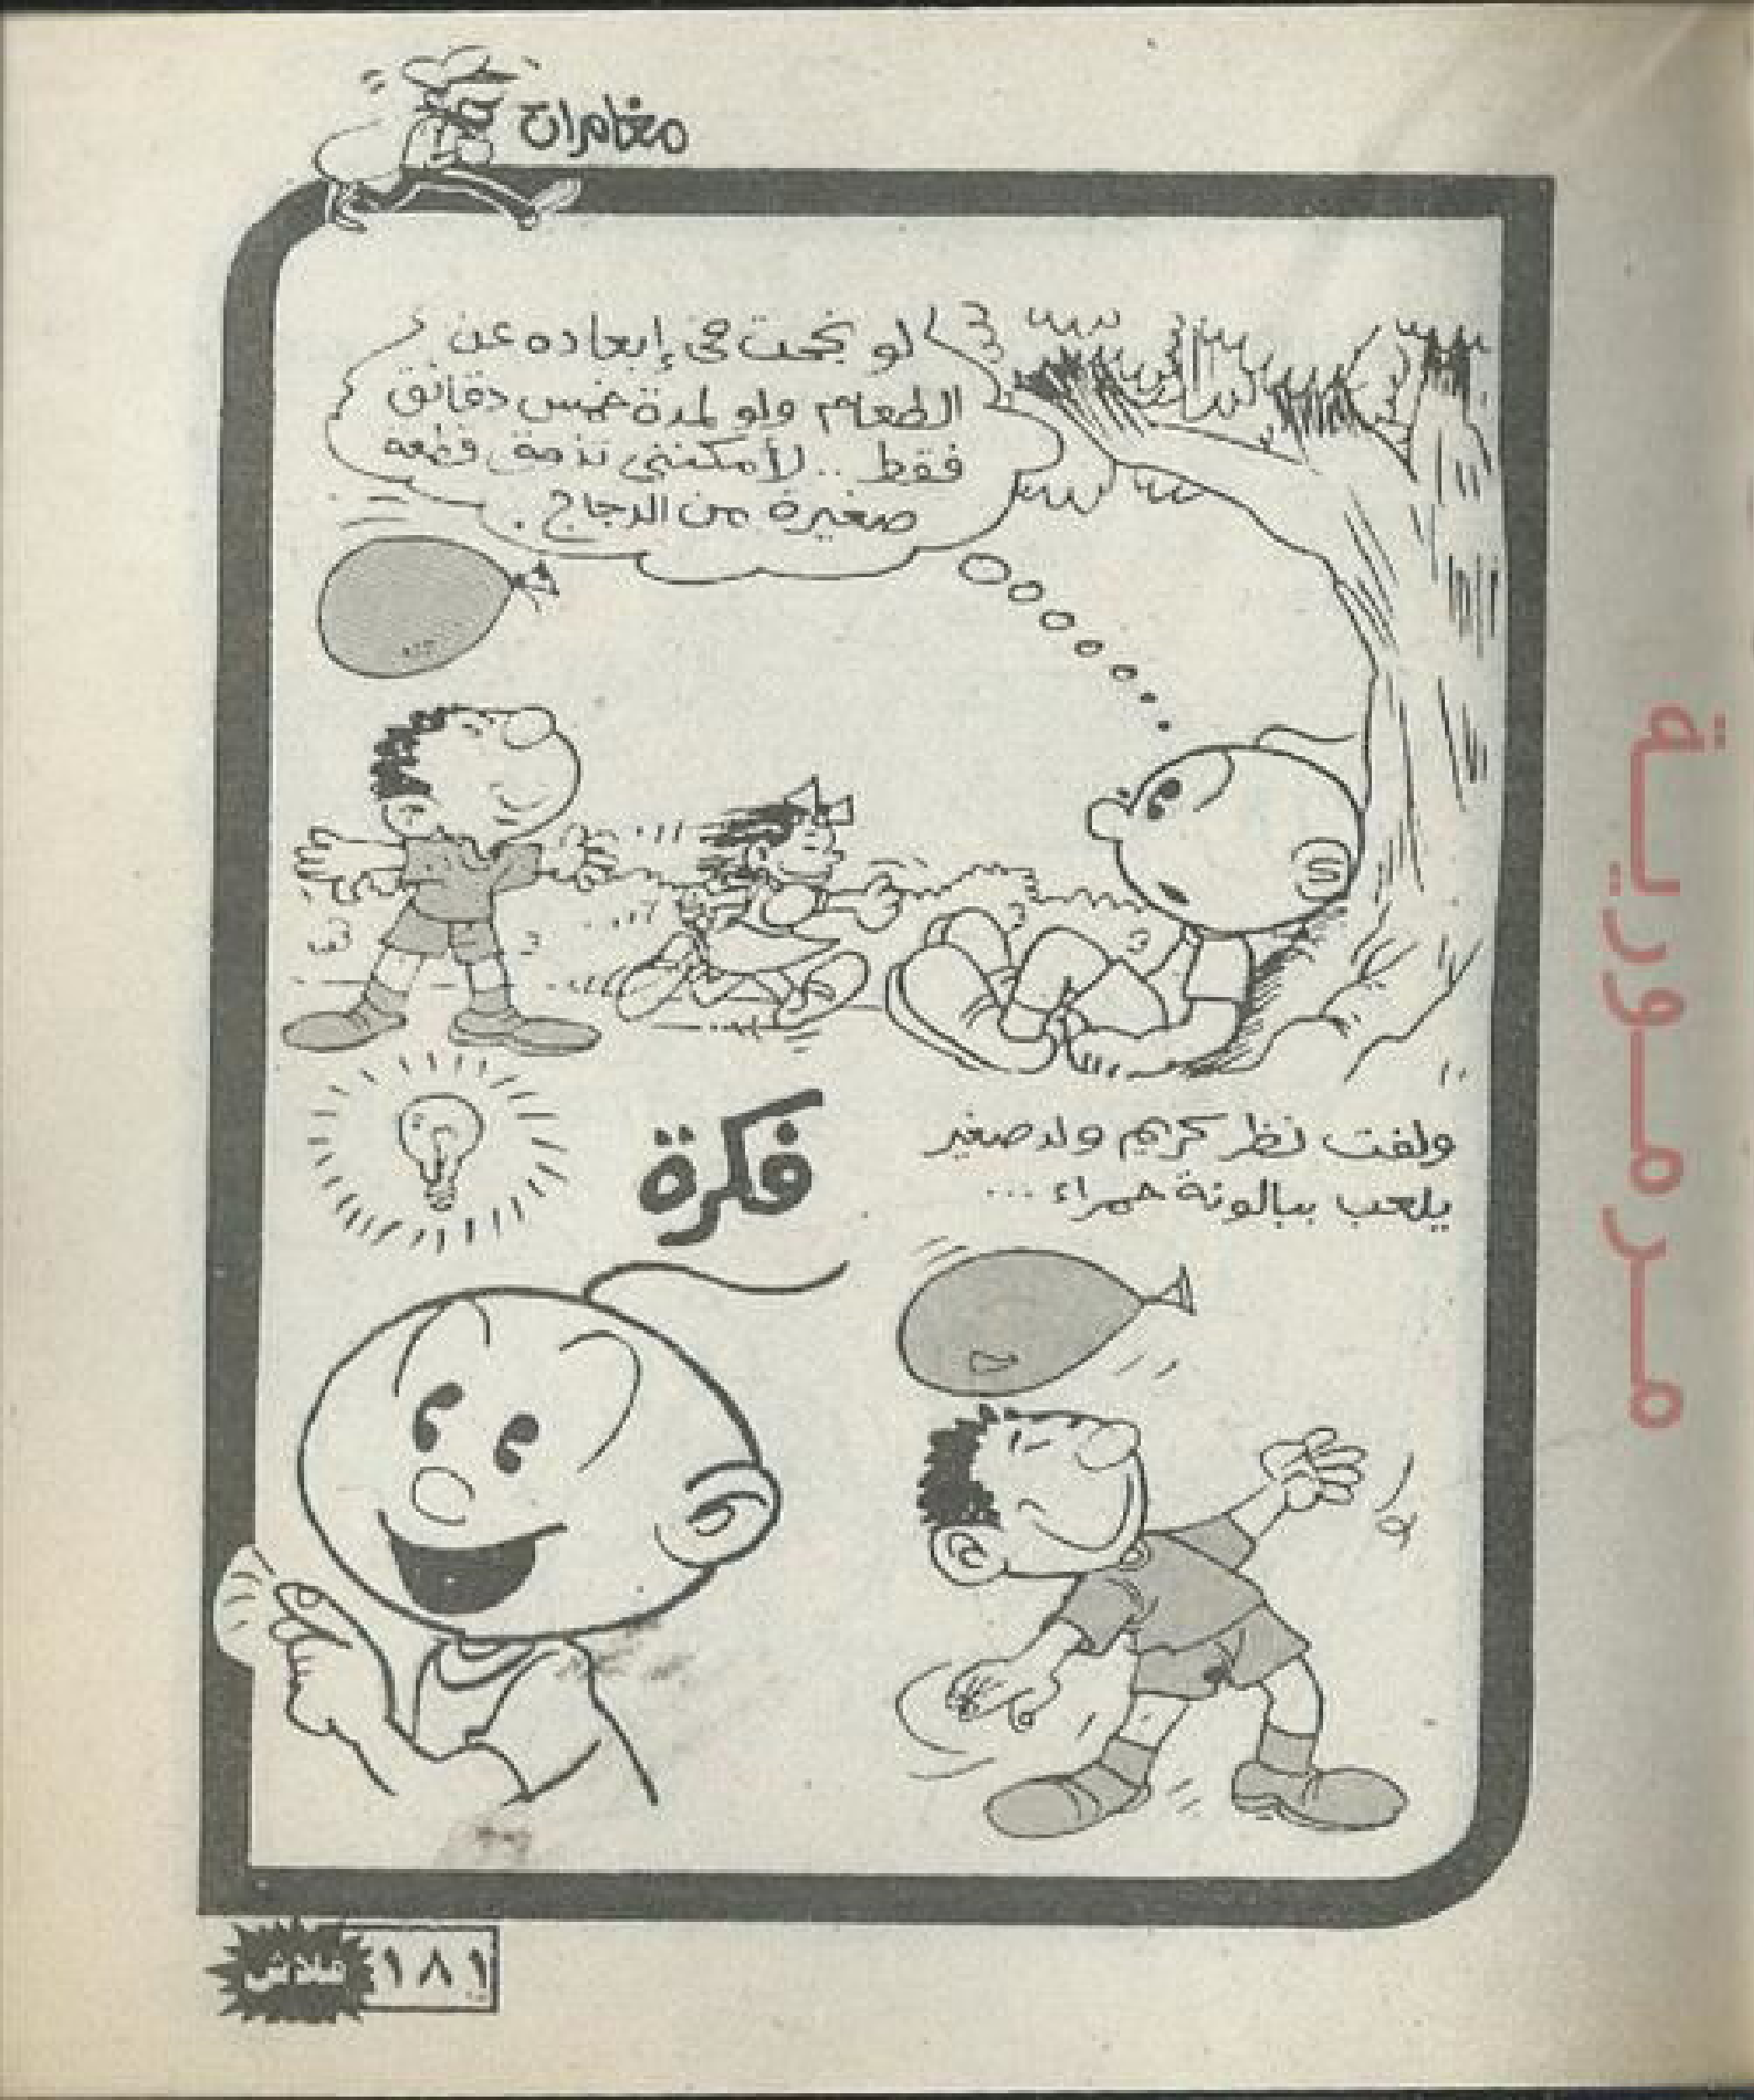 مغامرات
لو نجحت فى إبعاده عن
الطعام ولو لمدة خمس دقائق
فقط .. لأمكننى تذوق قطعة
صغيرة من الدجاج .
ولفت نظر كريم ولد صغير
يلعب ببالونة حمراء ...
فكرة
١٨١
فلاش
مرمورية